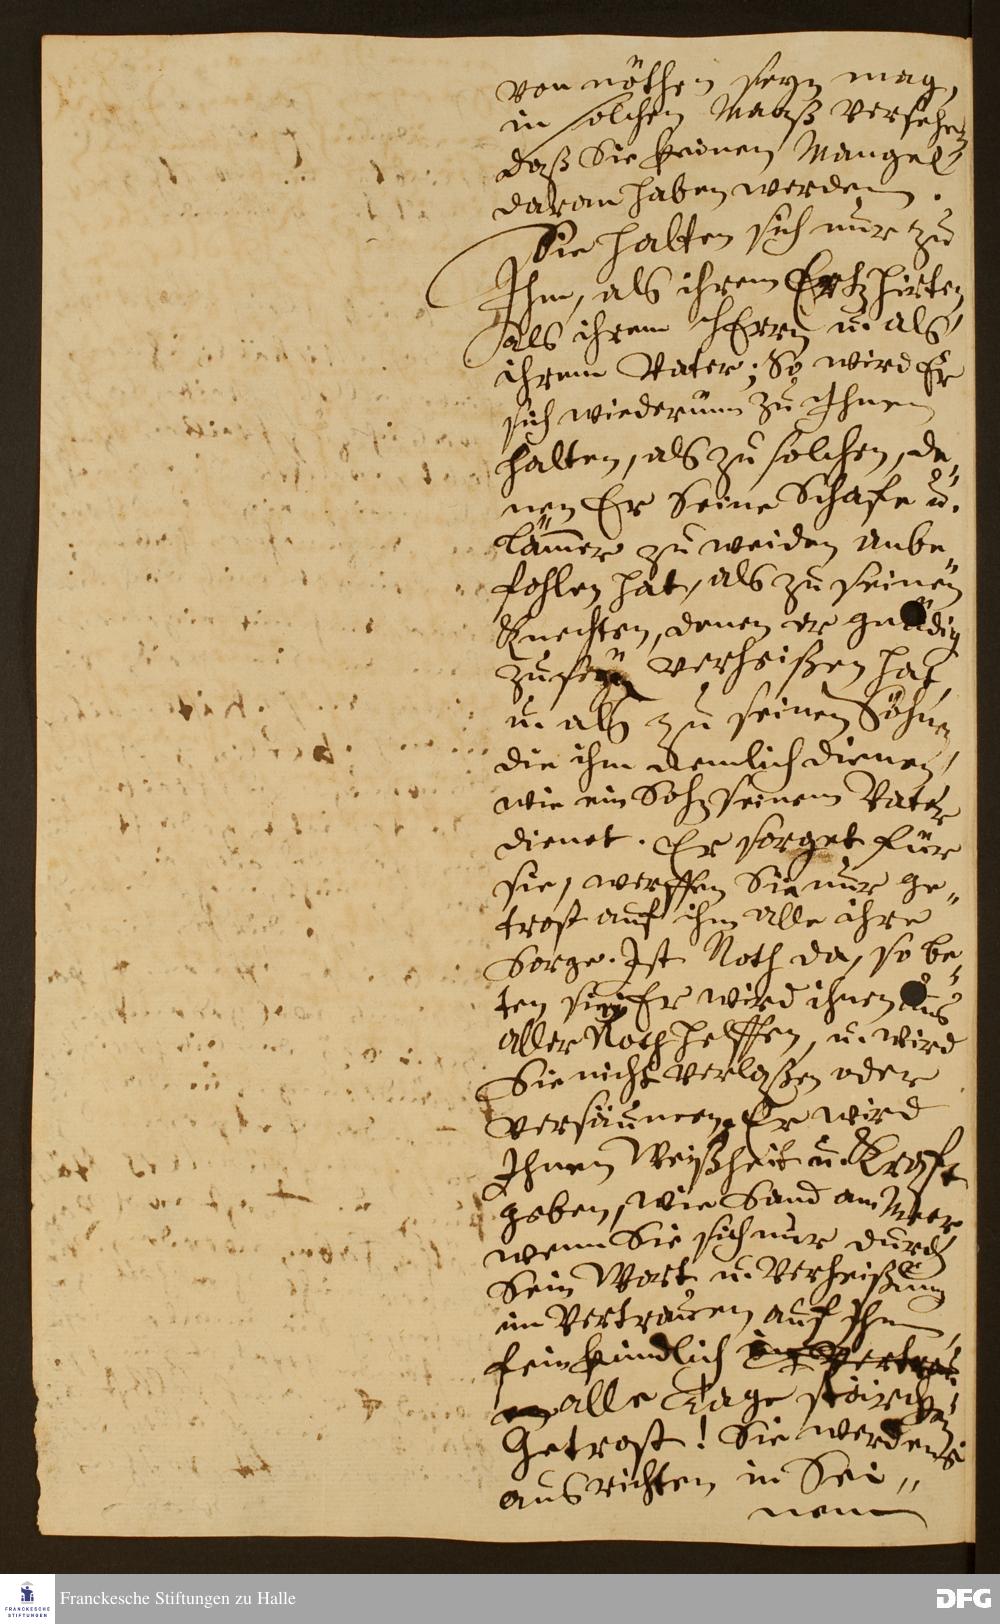 von nöthen seyn mag,
in solchen Maaß versehen
daß Sie keinen Mangel
daran haben werden.
Sie halten sich nur zu
Ihm, als ihrem Ertzhirten,
als ihrem HErrn u. als
ihrem Vater; So wird Er
sich wiederum zu Ihnen
halten, als zu solchen, de„
nen Er Seine Schafe u.
Lämer zu weiden anbe„
fohlen hat, als zu seinen
Knechten, denen er gnädig
zu seyn verheißen hat,
u. als zu seinen Söhnen,
die ihm nemlich dienen,
wie ein Sohn seinem Vater
dienet. Er sorget für
sie, werffen Sie nur ge„
trost auf ihn alle ihre
Sorge. Ist Noth da, so be„
ten sie; Er wird ihnen aus
aller Noth helffen, u. wird
Sie nicht verlaßen oder
versäumen. Er wird
Ihnen Weißheit u. Krafft
geben, wie Sand am Meer
wenn Sie sich nur durch
Sein Wort u. Verheißung
im Vertrauen auf Ihn
fein kindlich im Vertrau„
en alle Tage stärcken.
Getrost! Sie werdens
ausrichten in Sei„
nem
Franckesche Stiftungen zu Halle
DFG
FRANCKESCHE
STIFTUNGEN